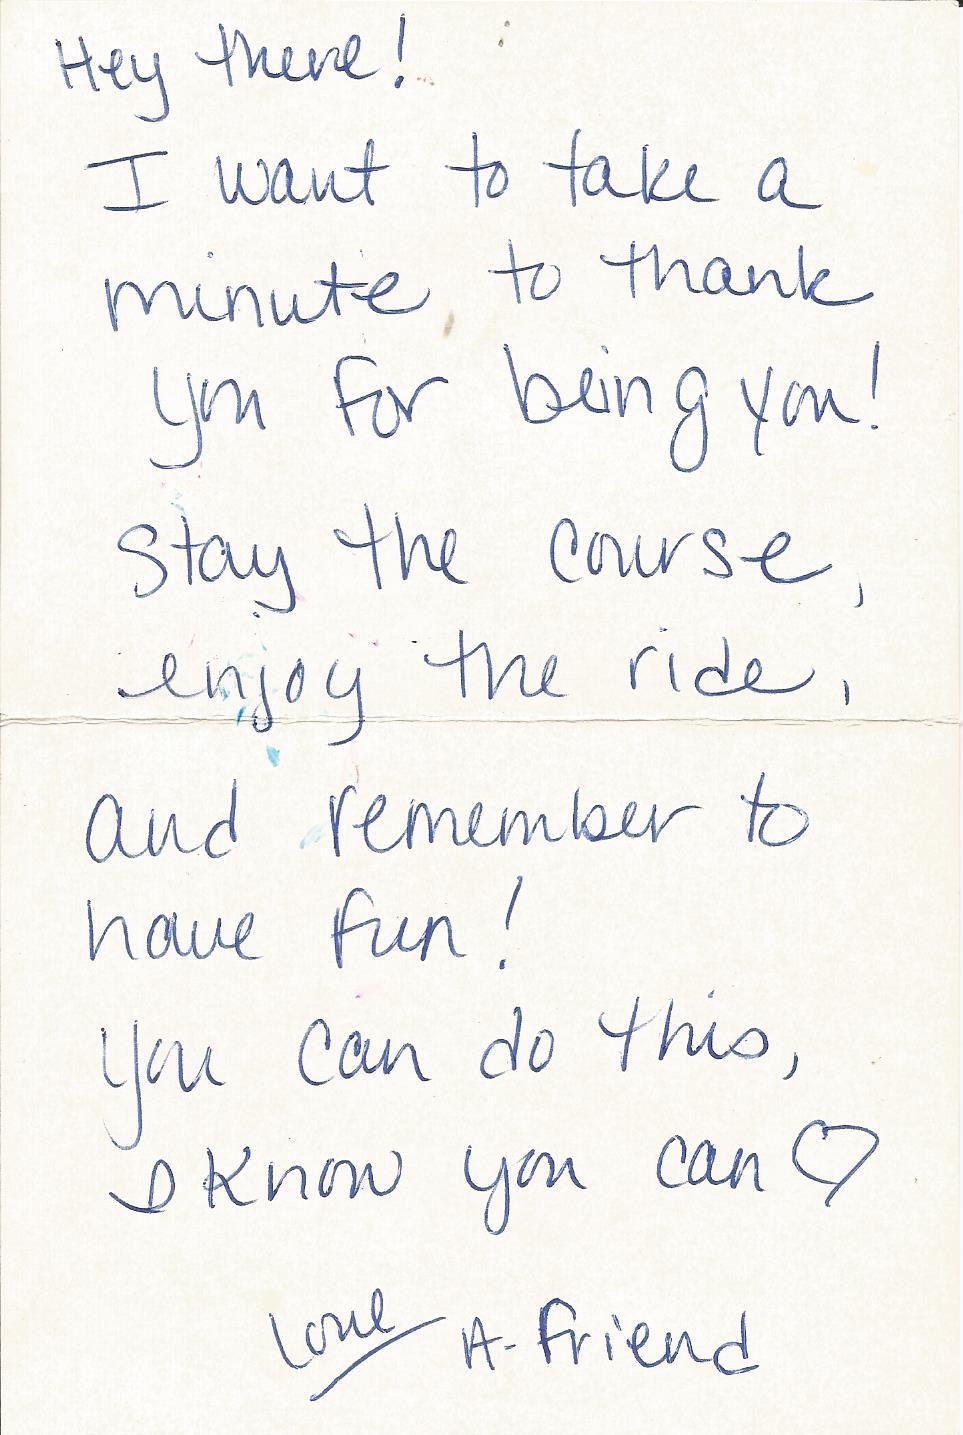 Hey there!
I want to take a
minute to thank
you for being you!
Stay the course,
enjoy the ride,
and remember to
have fun!
You can do this,
I know you can ♡
Love A-friend